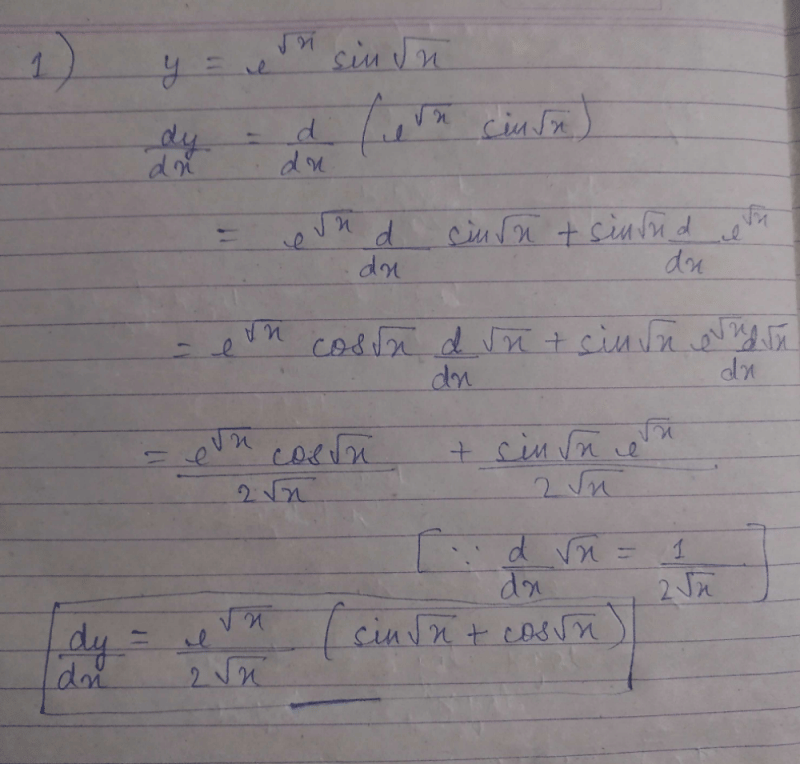 1) y = e^√x sin√x
dy/dx = d/dx (e^√x sin√x)
= e^√x d/dx sin√x + sin√x d/dx e^√x
= e^√x cos√x d/dx √x + sin√x e^√x d√x/dx
= e^√x cos√x / 2√x + sin√x e^√x / 2√x
[∵ d/dx √x = 1/2√x]
dy/dx = e^√x / 2√x (sin√x + cos√x)